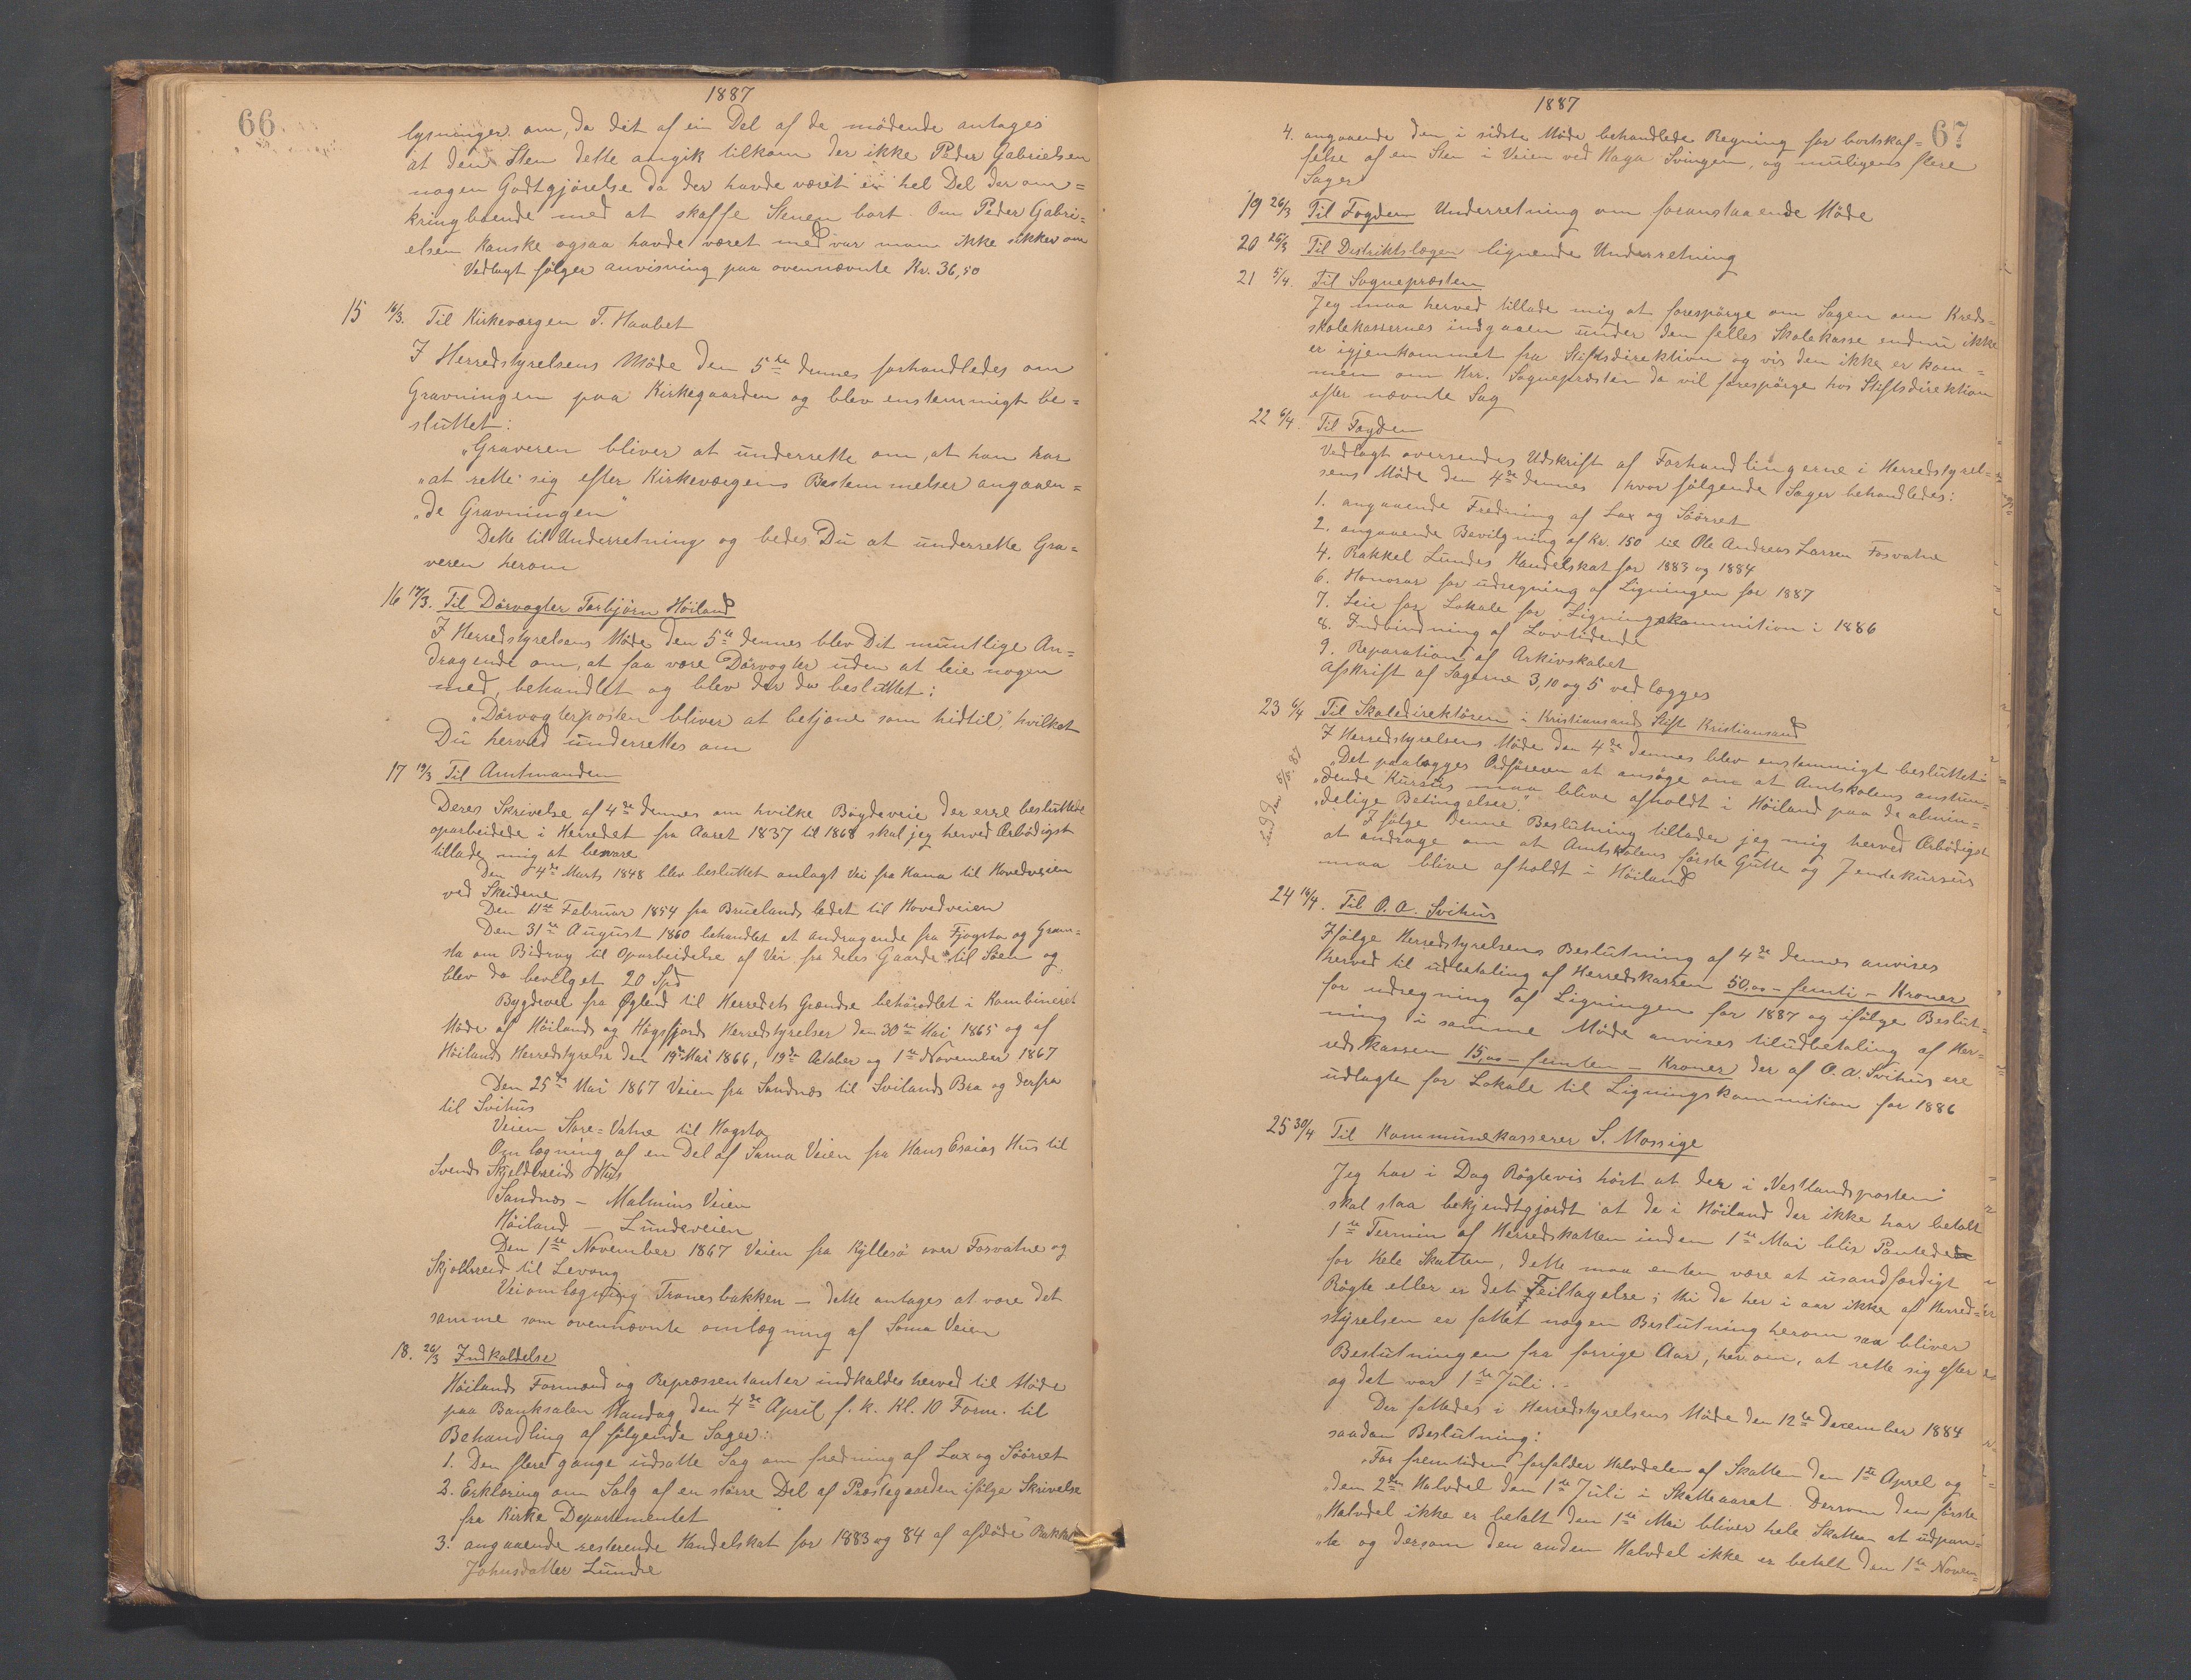 66
1887
lysninger om, da det af ein Del af de mødende antages
at den Sten dette angik tilkom der ikke Peder Gabrielsen
nogen Godtgjørelse da der havde været ein hel Del der om=
kringboende med at skaffe Stenen bort. Om Peder Gabri=
elsen kanske ogsaa havde været med var man ikke sikker om
Vedlagt følger anvisning paa ovennævnte Kr. 36,50
15 16/3. Til Kirkeværgen T. Haabet
I Herredstyrelsens Møde den 5te dennes forhandledes om
Gravningen paa Kirkegaarden og blev enstemmigt be=
sluttet:
"Graveren bliver at underrette om, at han har
"at rette sig efter Kirkeværgens Bestemmelser angaaen=
"de Gravningen"
Dette til Underretning og bedes Du at underrette Gra=
veren herom
16 17/3. Til Dørvogter Torbjørn Høiland
I Herredstyrelsens Møde den 5te dennes blev Dit muntlige An=
dragende om, at faa være Dørvogter uden at leie nogen
med, behandlet og blev der da besluttet:
"Dørvogterposten bliver at betjene som hidtil, hvilket
Du herved underrettes om
17 19/3 Til Amtmanden
Deres Skrivelse af 4de dennes om hvilke Bygdeveie der erre besluttede
oparbeidede i Herredet fra Aaret 1837 til 1868 skal jeg herved Ærbødigst
tillade mig at besvare
Den 4de Marts 1848 blev besluttet anlagt Vei fra Hana til Hovedveien
ved Skeidene
Den 11te Februar 1854 fra Bruelands ledet til Hovedveien
Den 31te August 1860 behandlet et andragende fra Fjogsta og Gram=
sta om Bidrag til Oparbeidelse af Vei fra deles Gaarde til Søen og
blev da bevilget 20 Spd
Bygdevei fra Øglend til Herredets Grændse behandlet i Kombineret
Møde af Høilands og Høgsfjords Herredstyrelser den 30te Mai 1865 og af
Høilands Herredstyrelse den 19de Mai 1866, 19de October og 1te November 1867
Den 25de Mai 1867 Veien fra Sandnæs til Svilands Bra og derfra
til Svihus
Veien Store=Vatne til Hogsta
Omlægning af en Del af Soma Veien fra Hans Esaias Hus til
Svends Skjelbreids Hus
Sandnæs – Malmins Veien
Høiland – Lundeveien
Den 1te November 1867 Veien fra Kyllesø over Fosvatne og
Skjelbreid til Levang
Veiomlægning Tronesbakken – dette antages at være det
samme som ovennævnte omlægning af Soma Veien
18. 26/3 Indkaldelse
Høilands Formænd og Repræsentanter indkaldes herved til Møde
paa Banksalen Mandag den 4de April f. k. Kl. 10 Form. til
Behandling af følgende Sager:
1. Den flere gange udsatte Sag om fredning af Lax og Søørret
2. Erklæring om Salg af en større Del af Præstegaarden ifølge Skrivelse
fra Kirke Departementet
3. angaaende resterende Handelskat for 1883 og 84 af afdøde Rakkel
Johnsdatter Lunde
1887
67
4. angaaende den i sidste Møde behandlede Regning for bortskaf=
felse af en Sten i Veien ved Haga Svingen, og muligens flere
Sager
19 26/3 Til Fogden Underretning om foranstaaende Møde
20 26/3 Til Distriktslægen lignende Underretning
21 5/4. Til Sognepræsten
Jeg maa herved tillade mig at forespørge om Sagen om Kreds=
skolekassernes indgaaen under den felles Skolekasse endnu ikke
er igjenkommet fra Stiftsdirektion og vis den ikke er kom=
men om Hrr. Sognepræsten da vil forespørge hos Stiftsdirektion
efter nævnte Sag
22 6/4. Til Fogden
Vedlagt oversendes Udskrift af Forhandlingerne i Herredstyrel=
sens Møde den 4de dennes hvor følgende Sager behandledes:
1. angaaende Fredning af Lax og Søørret
2. angaaende Bevilgning af Kr. 150 til Ole Andreas Larsen Fosvatne
4. Rakkel Lundes Handelskat for 1883 og 1884
6. Honorar for udregning af Ligningen for 1887
7. Leie for Lokale for Ligningskommition i 1886
8. Indbindning af Lovtidende
9. Reparation af Arkivskabet
Afskrift af Sagerne 3, 10 og 5 vedlægges
23 6/4 Til Skoledirektøren i Kristiansands Stift Kristiansand
I Herredstyrelsens Møde den 4de dennes blev enstemmigt besluttet:
"Det paalægges Ordføreren at ansøge om at Amtskolens anstun=
"dende Kursus maa blive afholdt i Høiland paa de almin=
"delige Betingelser."
Ifølge denne Beslutning tillader jeg mig herved Ærbødigst
at andrage om at Amtskolens første Gutte og Jentekursus
maa blive afholdt i Høiland
24 16/4. Til O. A. Svihus
Ifølge Herredstyrelsens Beslutning af 4de dennes anvises
herved til udbetaling af Herredskassen 50,00 – femti – Kroner
for udregning af Ligningen for 1887 og ifølge Beslut=
ning i samme Møde anvises til udbetaling af Her=
redskassen 15,00 – femten – Kroner der af O. A. Svihus ere
udlagte for Lokale til Ligningskommition for 1886
25 30/4 Til Kommunekasserer S. Mossige
Jeg har i Dag Røgtevis hørt at der i "Vestlandsposten"
skal staa bekjendtgjordt at de i Høiland der ikke har betalt
1te Termin af Herredskatten inden 1te Mai blir Pantede
for Hele Skatten, dette maa enten være et usandfærdigt
Røgte eller er det Feiltagelse; thi da her i aar ikke af Herred=
styrelsen er fattet nogen Beslutning herom saa bliver
Beslutningen fra forrige Aar, her om, at rette sig efter
og det var 1te Juli.
Der fattedes i Herredstyrelsens Møde den 12te December 1884
saadan Beslutning:
"For fremtiden forfalder Halvdelen af Skatten den 1te April og
"den 2den Halvdel den 1te Juli i Skatteaaret. Dersom den første
"Halvdel ikke er betalt den 1te Mai bliver hele Skatten at udpan=
"te og dersom den anden Halvdel ikke er betalt den 1te Novem=